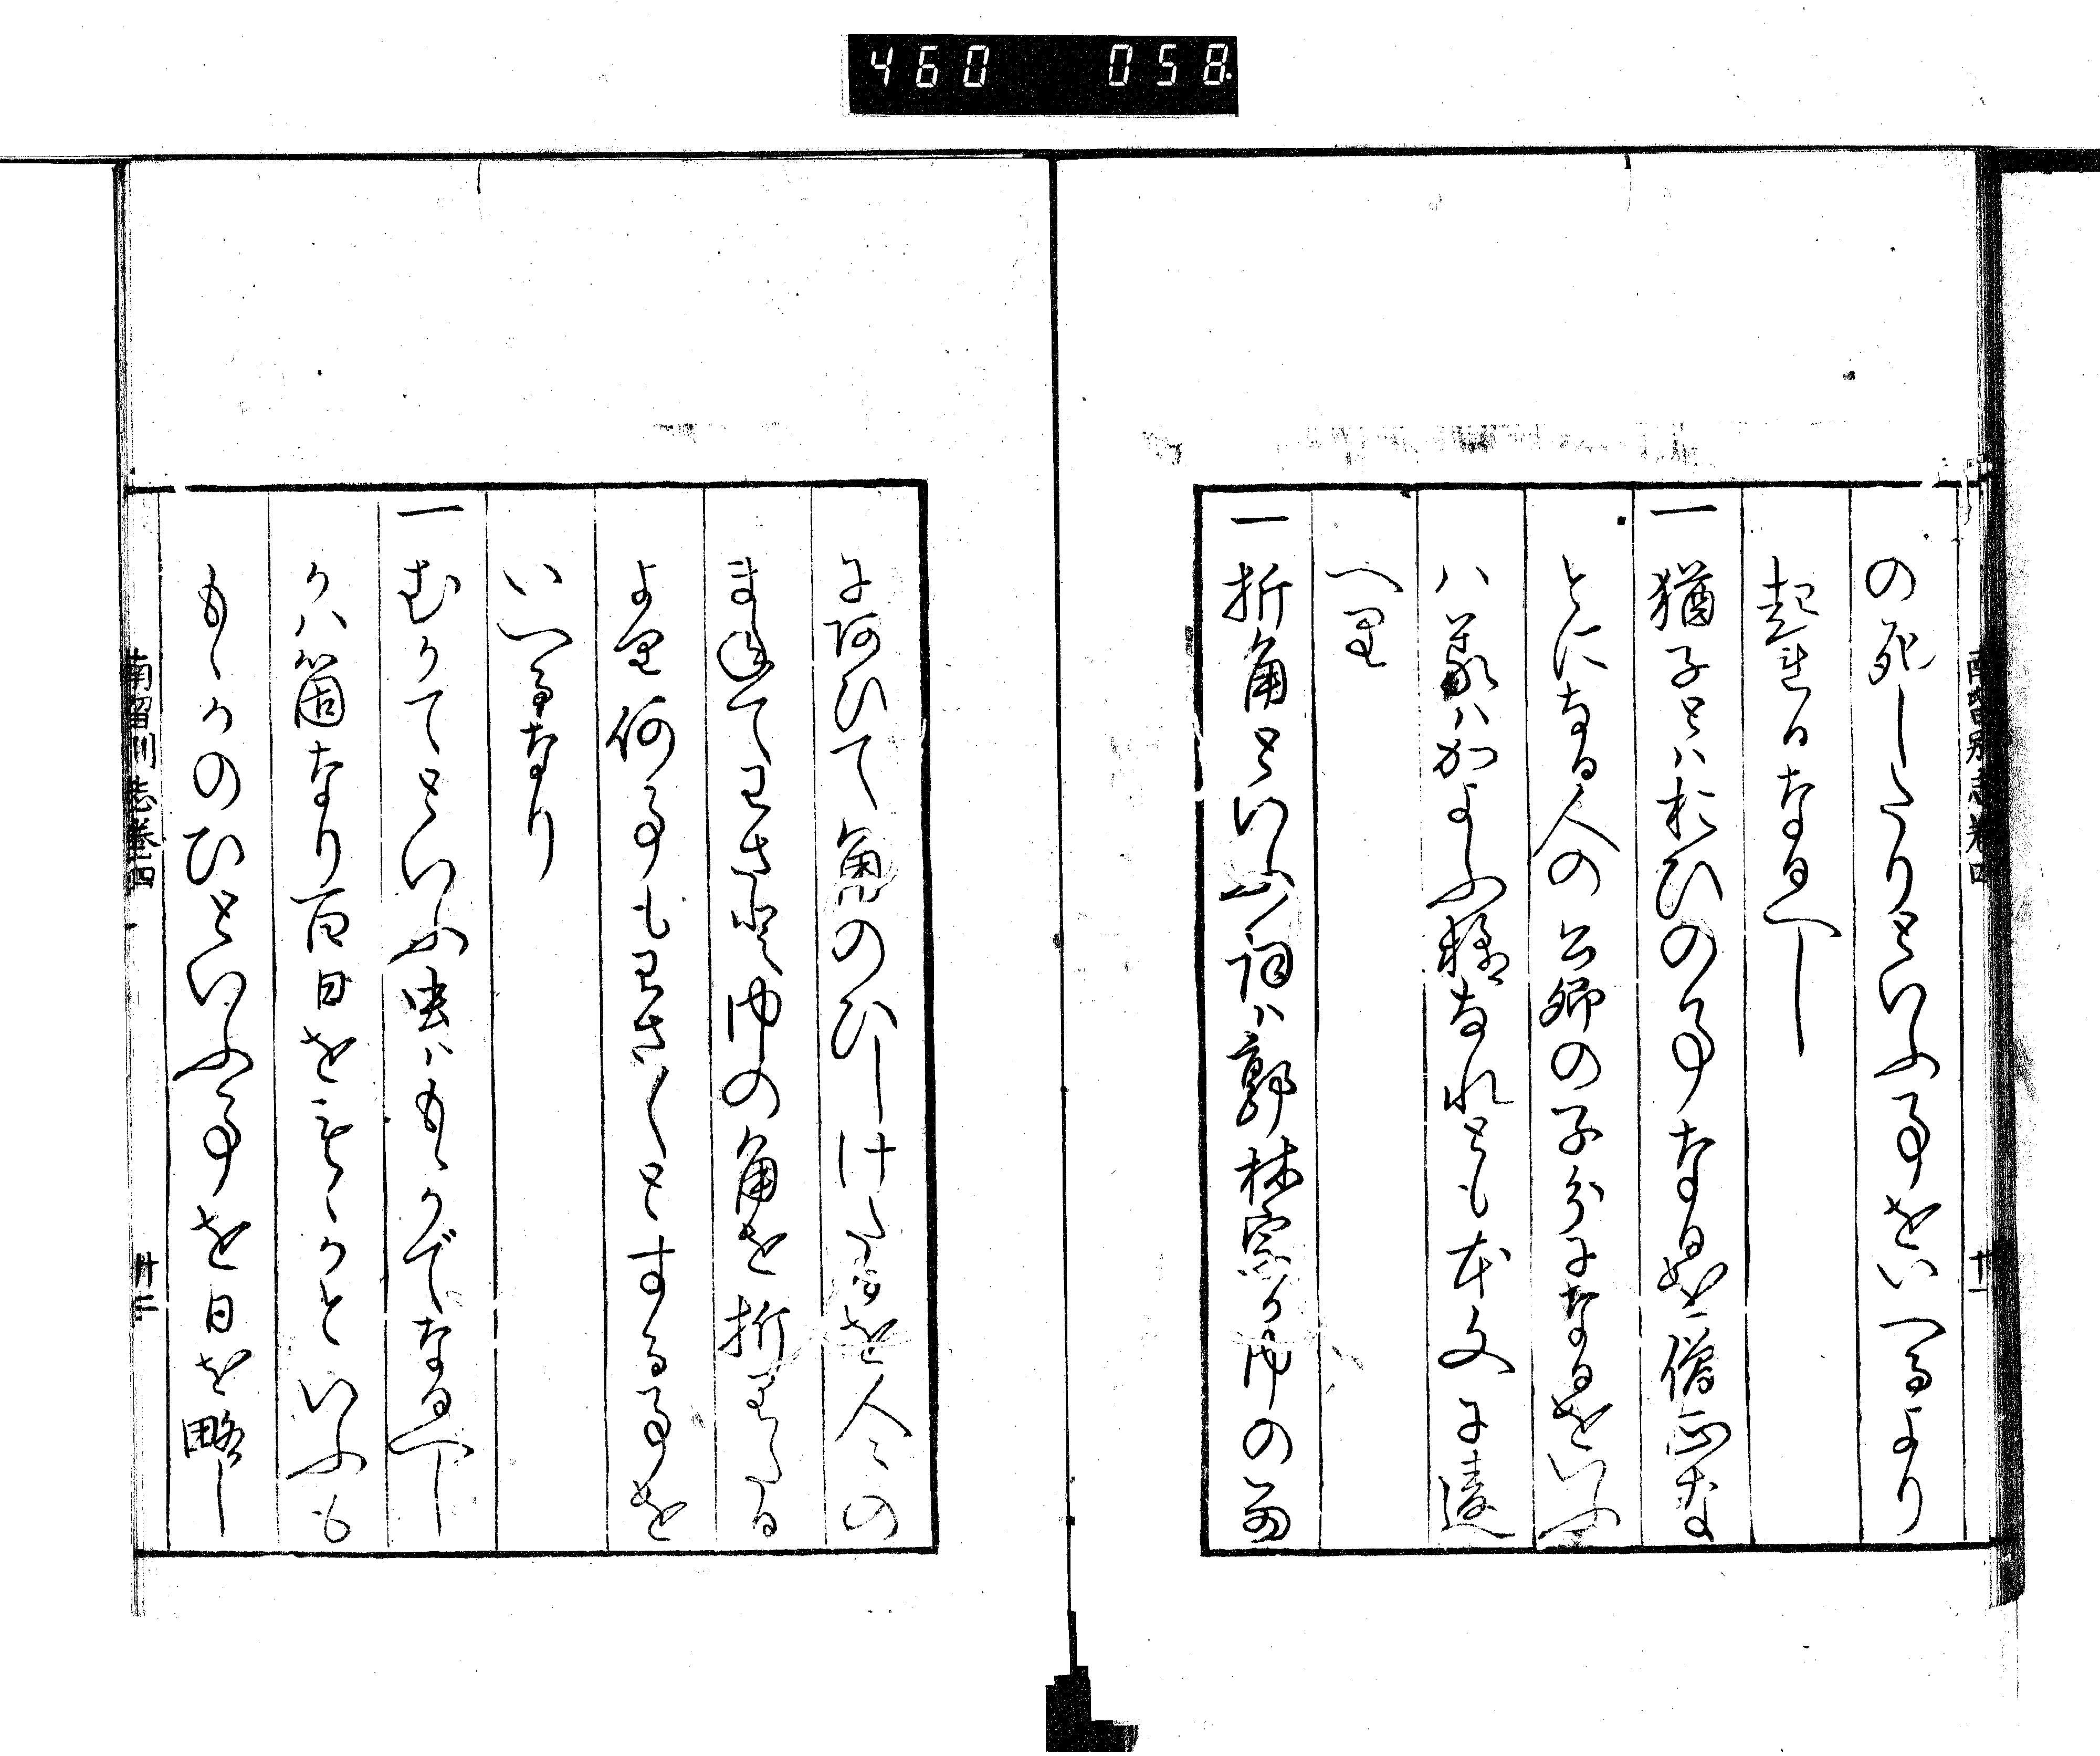 460 058
の死したりといふ事をいへるより
起れるなるへし
一猶子とハおひの事なるを僧正な
とになる人の公卿の子分になるをいふ
ハ義ハかよふ様なれとも本文に違
へり
一折角といふ詞ハ郭林宗か巾の雨
にあひて角のひしけたるを人々の
まねてわさと巾の角を折りたる
より何事もわさ〱とする事を
いへるなり
一むかてといふ虫ハもゝかでなるへし
かハ箇なり百日をもゝかといふも
もゝかのひといふ事を日を略し
南留別志巻四
廿一
南留別志巻四
廿二